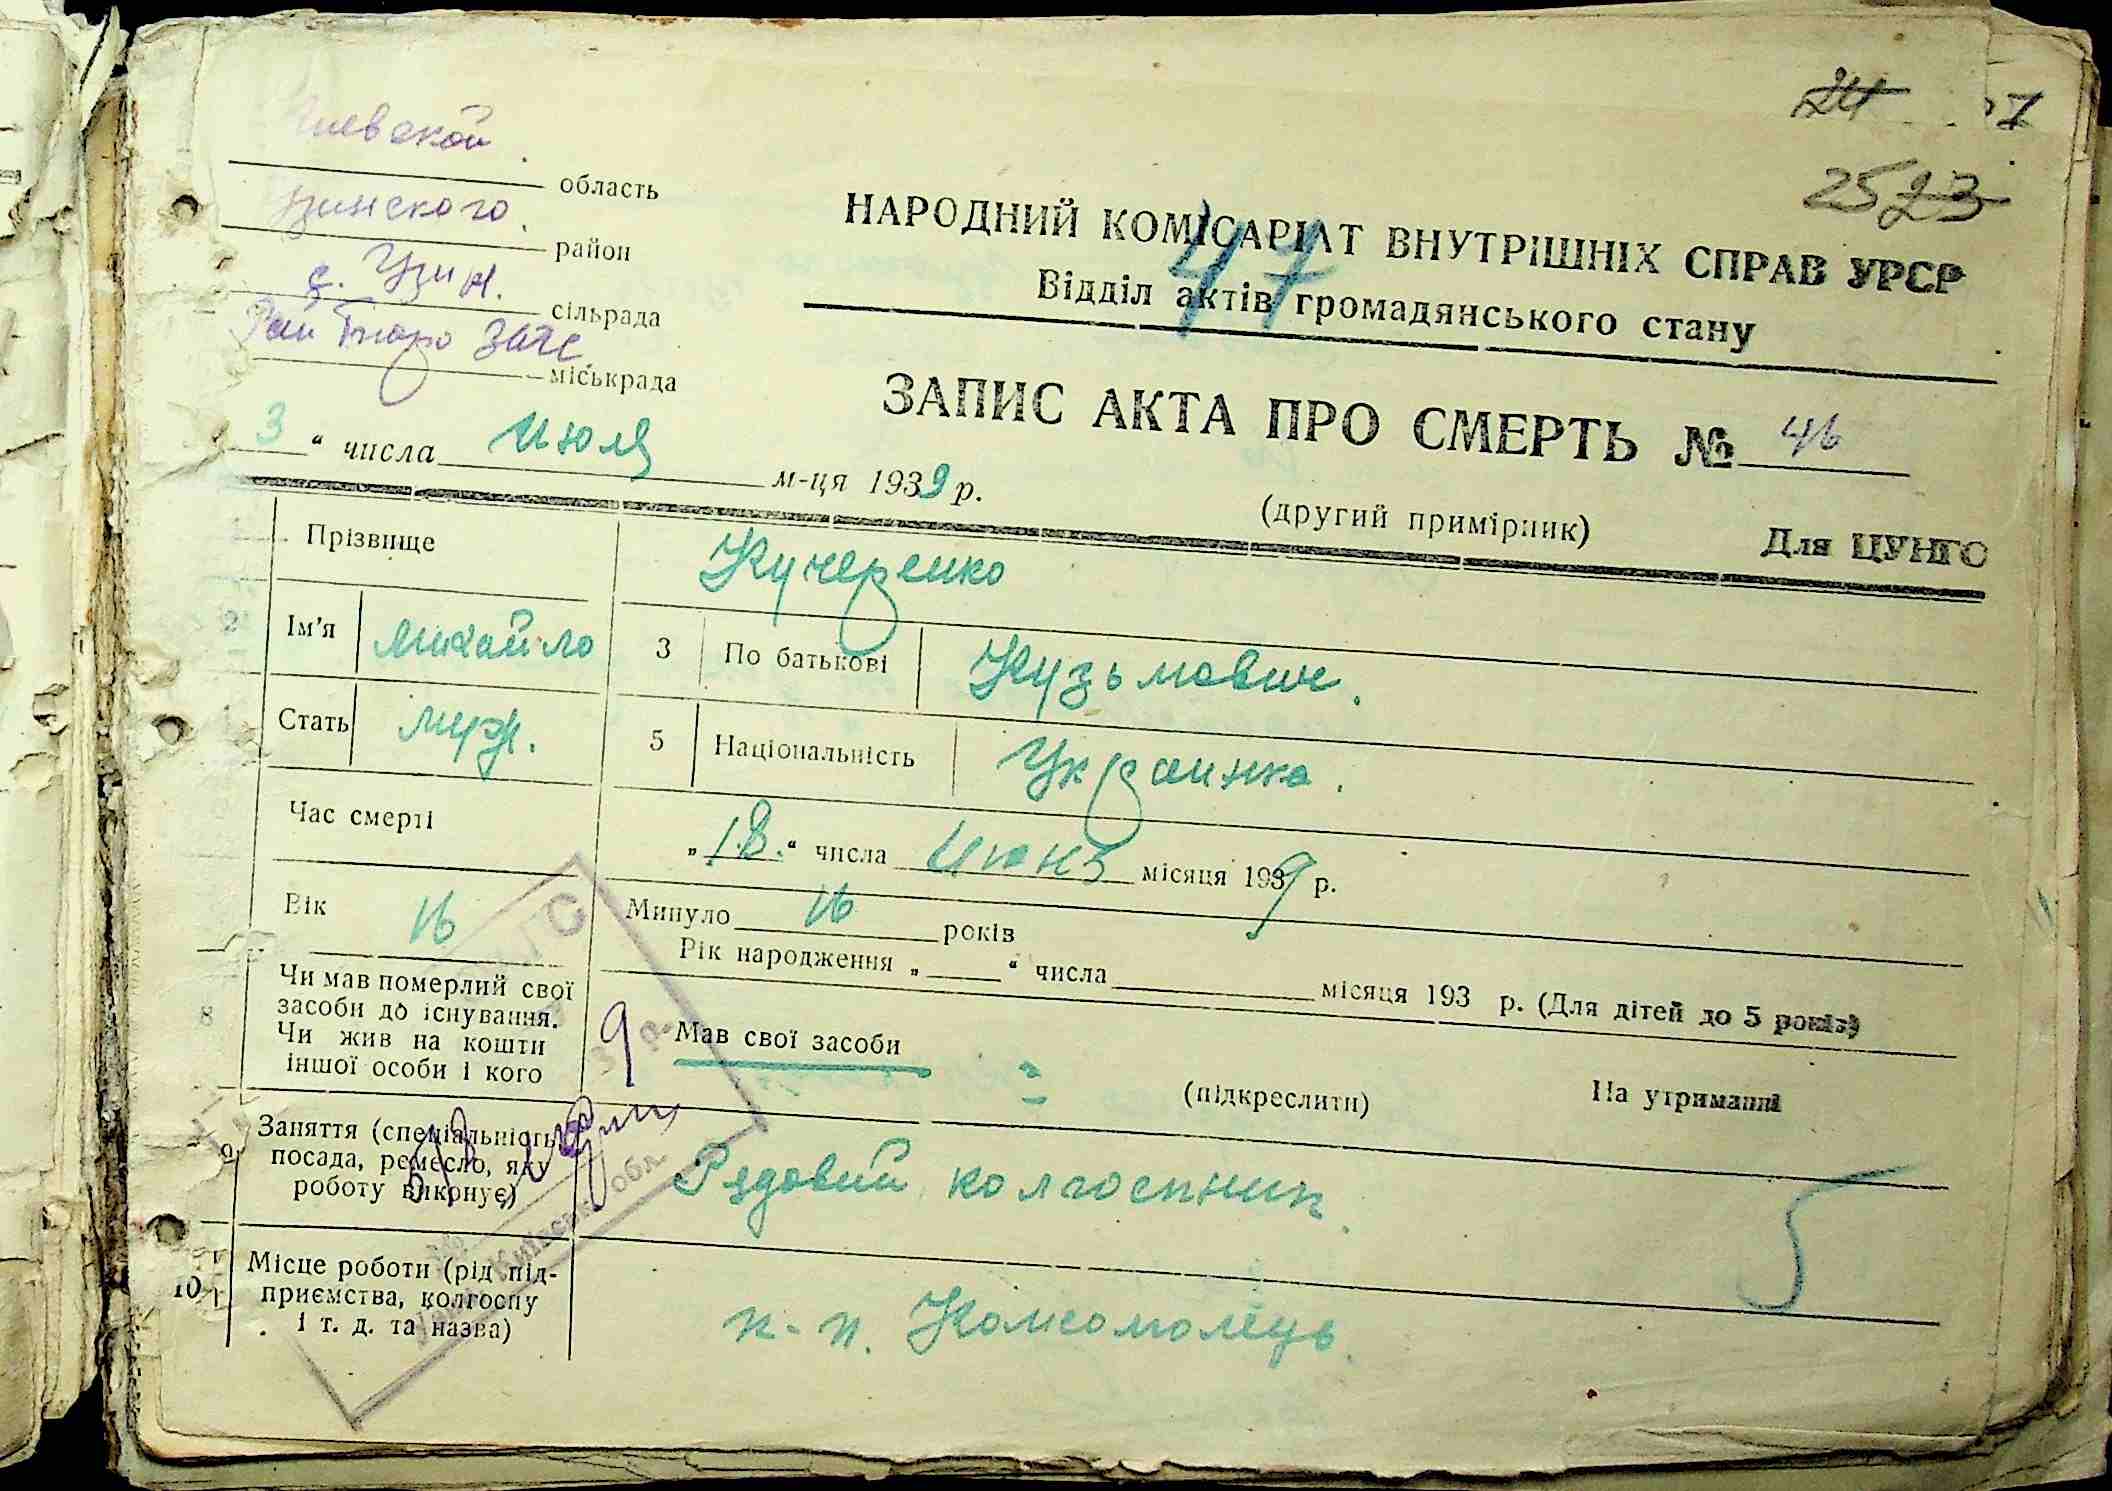 24
2523
Киевской область
Узинского район
с. Узин. сільрада
Рай Бюро ЗАГС міськрада
47
НАРОДНИЙ КОМІСАРІАТ ВНУТРІШНІХ СПРАВ УРСР
Відділ актів громадянського стану
ЗАПИС АКТА ПРО СМЕРТЬ № 46
3 " числа Июля м-ця 1939 р.
(другий примірник) Для ЦУНГО
Прізвище Кучеренко
2 Ім'я Михайло 3 По батькові Кузьмович.
Стать муж. 5 Національність Украинка.
Час смерті „18." числа Июнь місяця 1939 р.
Вік 16 Минуло 16 років
Рік народження „ " числа місяця 193 р. (Для дітей до 5 років)
8 Чи мав померлий свої
засоби до існування.
Чи жив на кошти
іншої особи і кого
Мав свої засоби = (підкреслити) На утриманні
9 Заняття (спеціальність,
посада, ремесло, яку
роботу виконує)
Рядовий колгоспник.
5
10 Місце роботи (рід під-
приємства, колгоспу
і т. д. та назва)
к-п. Комсомолець.
ЗАГС
9 р.
Київськ. обл.